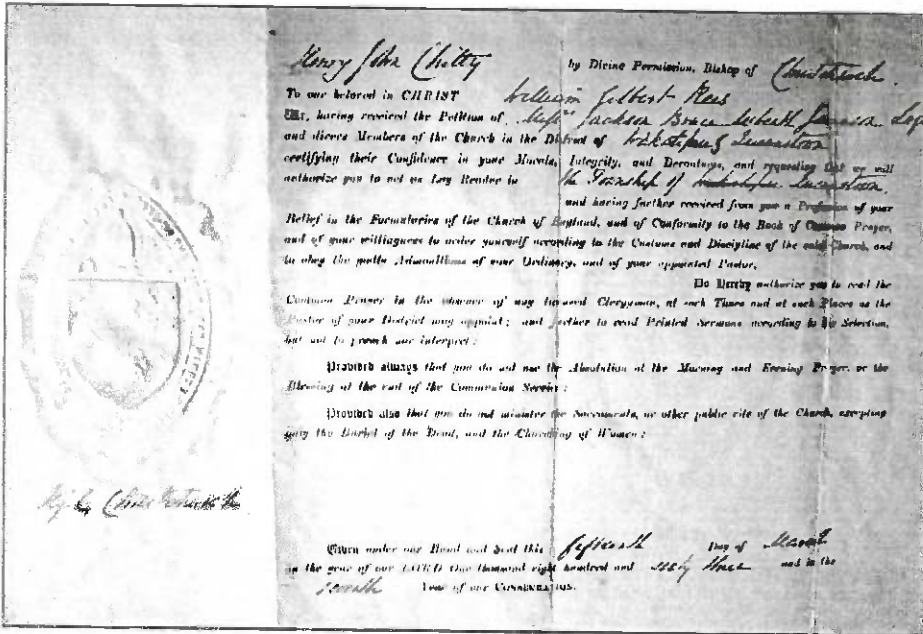 Henry John Chitty by Divine Permission, Bishop of Christchurch
To our beloved in CHRIST William Gilbert Rees
We, having received the Petition of Jackson
and divers Members of the Church in the District of Queenstown
certifying their Confidence in your Morals, Integrity, and Devoutness, and requesting that we will
authorize you to act as Lay Reader in the Township of
and having further received from you a Profession of your
Belief in the Formularies of the Church of England, and of Conformity to the Book of Common Prayer,
and of your willingness to order yourself according to the Customs and Discipline of the said Church, and
to obey the godly Admonitions of your Ordinary, and of your appointed Pastor,
Do Hereby authorize you to read the
Common Prayer in the absence of any licensed Clergyman, at such Times and at such Places as the
Pastor of your District may appoint; and further to read Printed Sermons according to his Selection,
but not to preach nor interpret:
Provided always that you do not use the Absolution at the Morning and Evening Prayer, or the
Blessing at the end of the Communion Service:
Provided also that you do not minister the Sacraments, or other public rite of the Church, excepting
only the Burial of the Dead, and the Churching of Women:
Given under our Hand and Seal this fifteenth Day of
in the year of our LORD One thousand eight hundred and sixty three and in the
Year of our CONSECRATION.